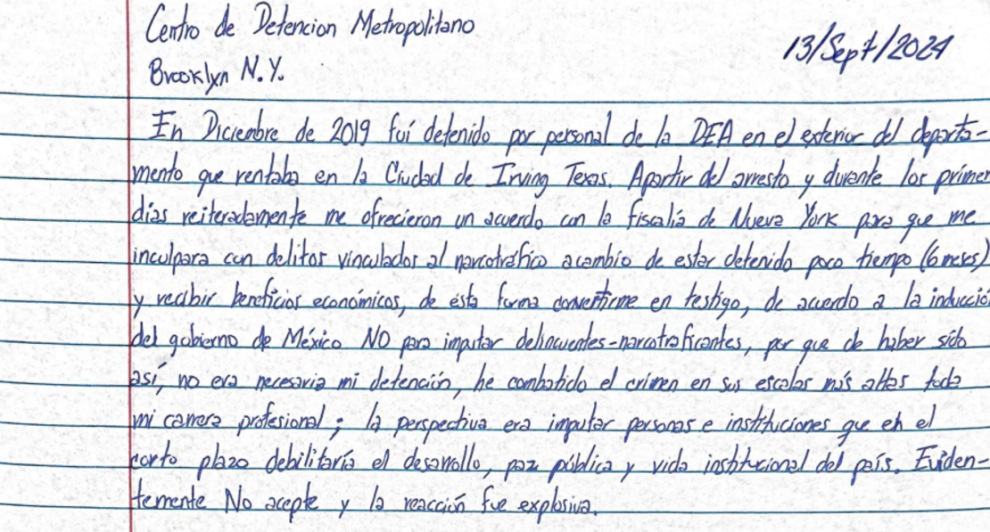 Centro de Detencion Metropolitano
13/Sept/2024
Brooklyn N.Y.
En Diciembre de 2019 fuí detenido por personal de la DEA en el exterior del departa-
mento que rentaba en la Ciudad de Irving Texas. Apartir del arresto y durante los primer
días reiteradamente me ofrecieron un acuerdo con la fiscalía de Nueva York para que me
inculpara con delitos vinculados al narcotráfico acambio de estar detenido poco tiempo (6 meses)
y recibir beneficios económicos, de esta forma convertirme en testigo, de acuerdo a la inducció
del gobierno de México NO para imputar delincuentes-narcotraficantes, por que de haber sido
así, no era necesaria mi detención, he combatido el crimen en sus escalas más altas toda
mi carrera profesional; la perspectiva era imputar personas e instituciones que en el
corto plazo debilitaría el desarrollo, paz pública y vida institucional del país. Eviden-
temente No acepte y la reacción fue explosiva.